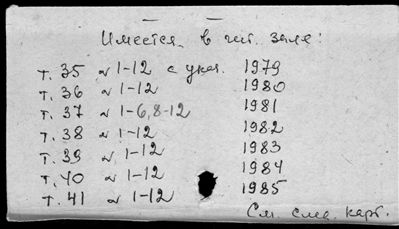 Имеется в чит. зале:
т. 35 № 1-12 с указ. 1979
т. 36 № 1-12 1980
т. 37 № 1-6, 8-12 1981
т. 38 № 1-12 1982
т. 39 № 1-12 1983
т. 40 № 1-12 1984
т. 41 № 1-12 1985
См след. карт.